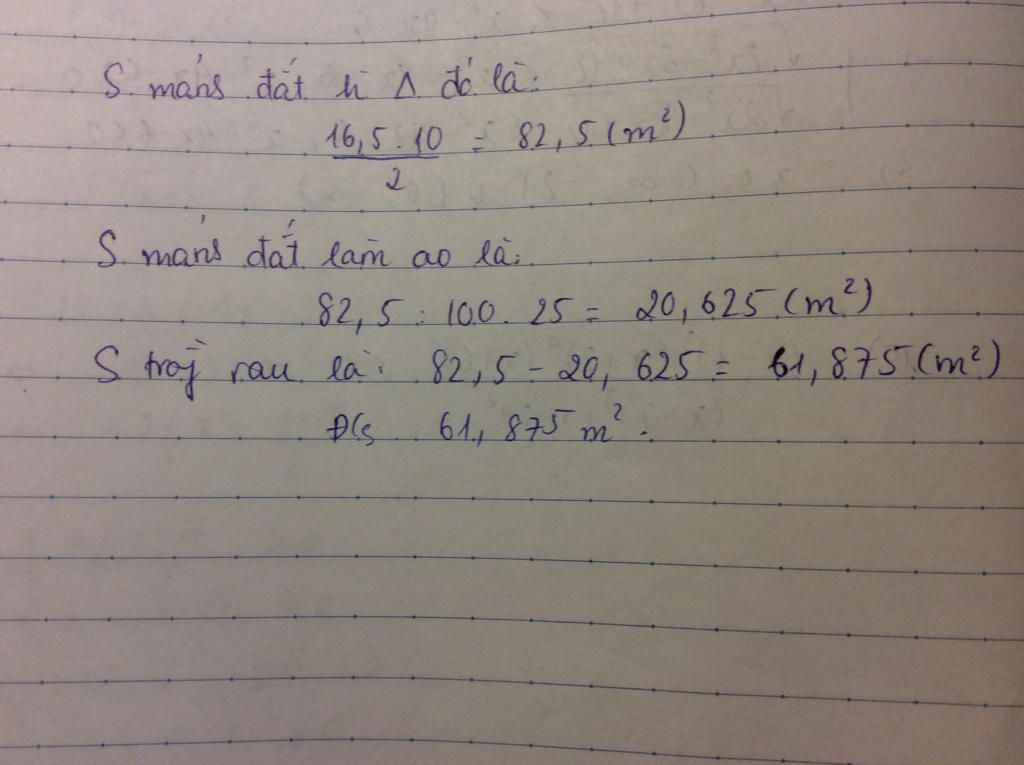 S mảnh đất h Δ đó là:
16,5 . 10 = 82,5 (m²)
2
S mảnh đất làm ao là:
82,5 : 100 . 25 = 20,625 (m²)
S trồng rau là: 82,5 - 20,625 = 61,875 (m²)
Đ/s 61,875 m².